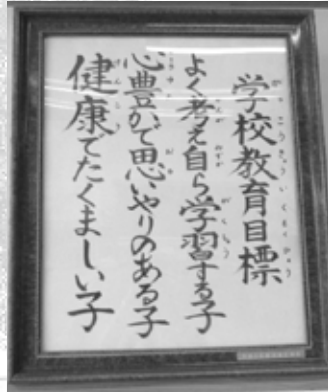 学校教育目標
よく考え自ら学習する子
心豊かで思いやりのある子
健康でたくましい子